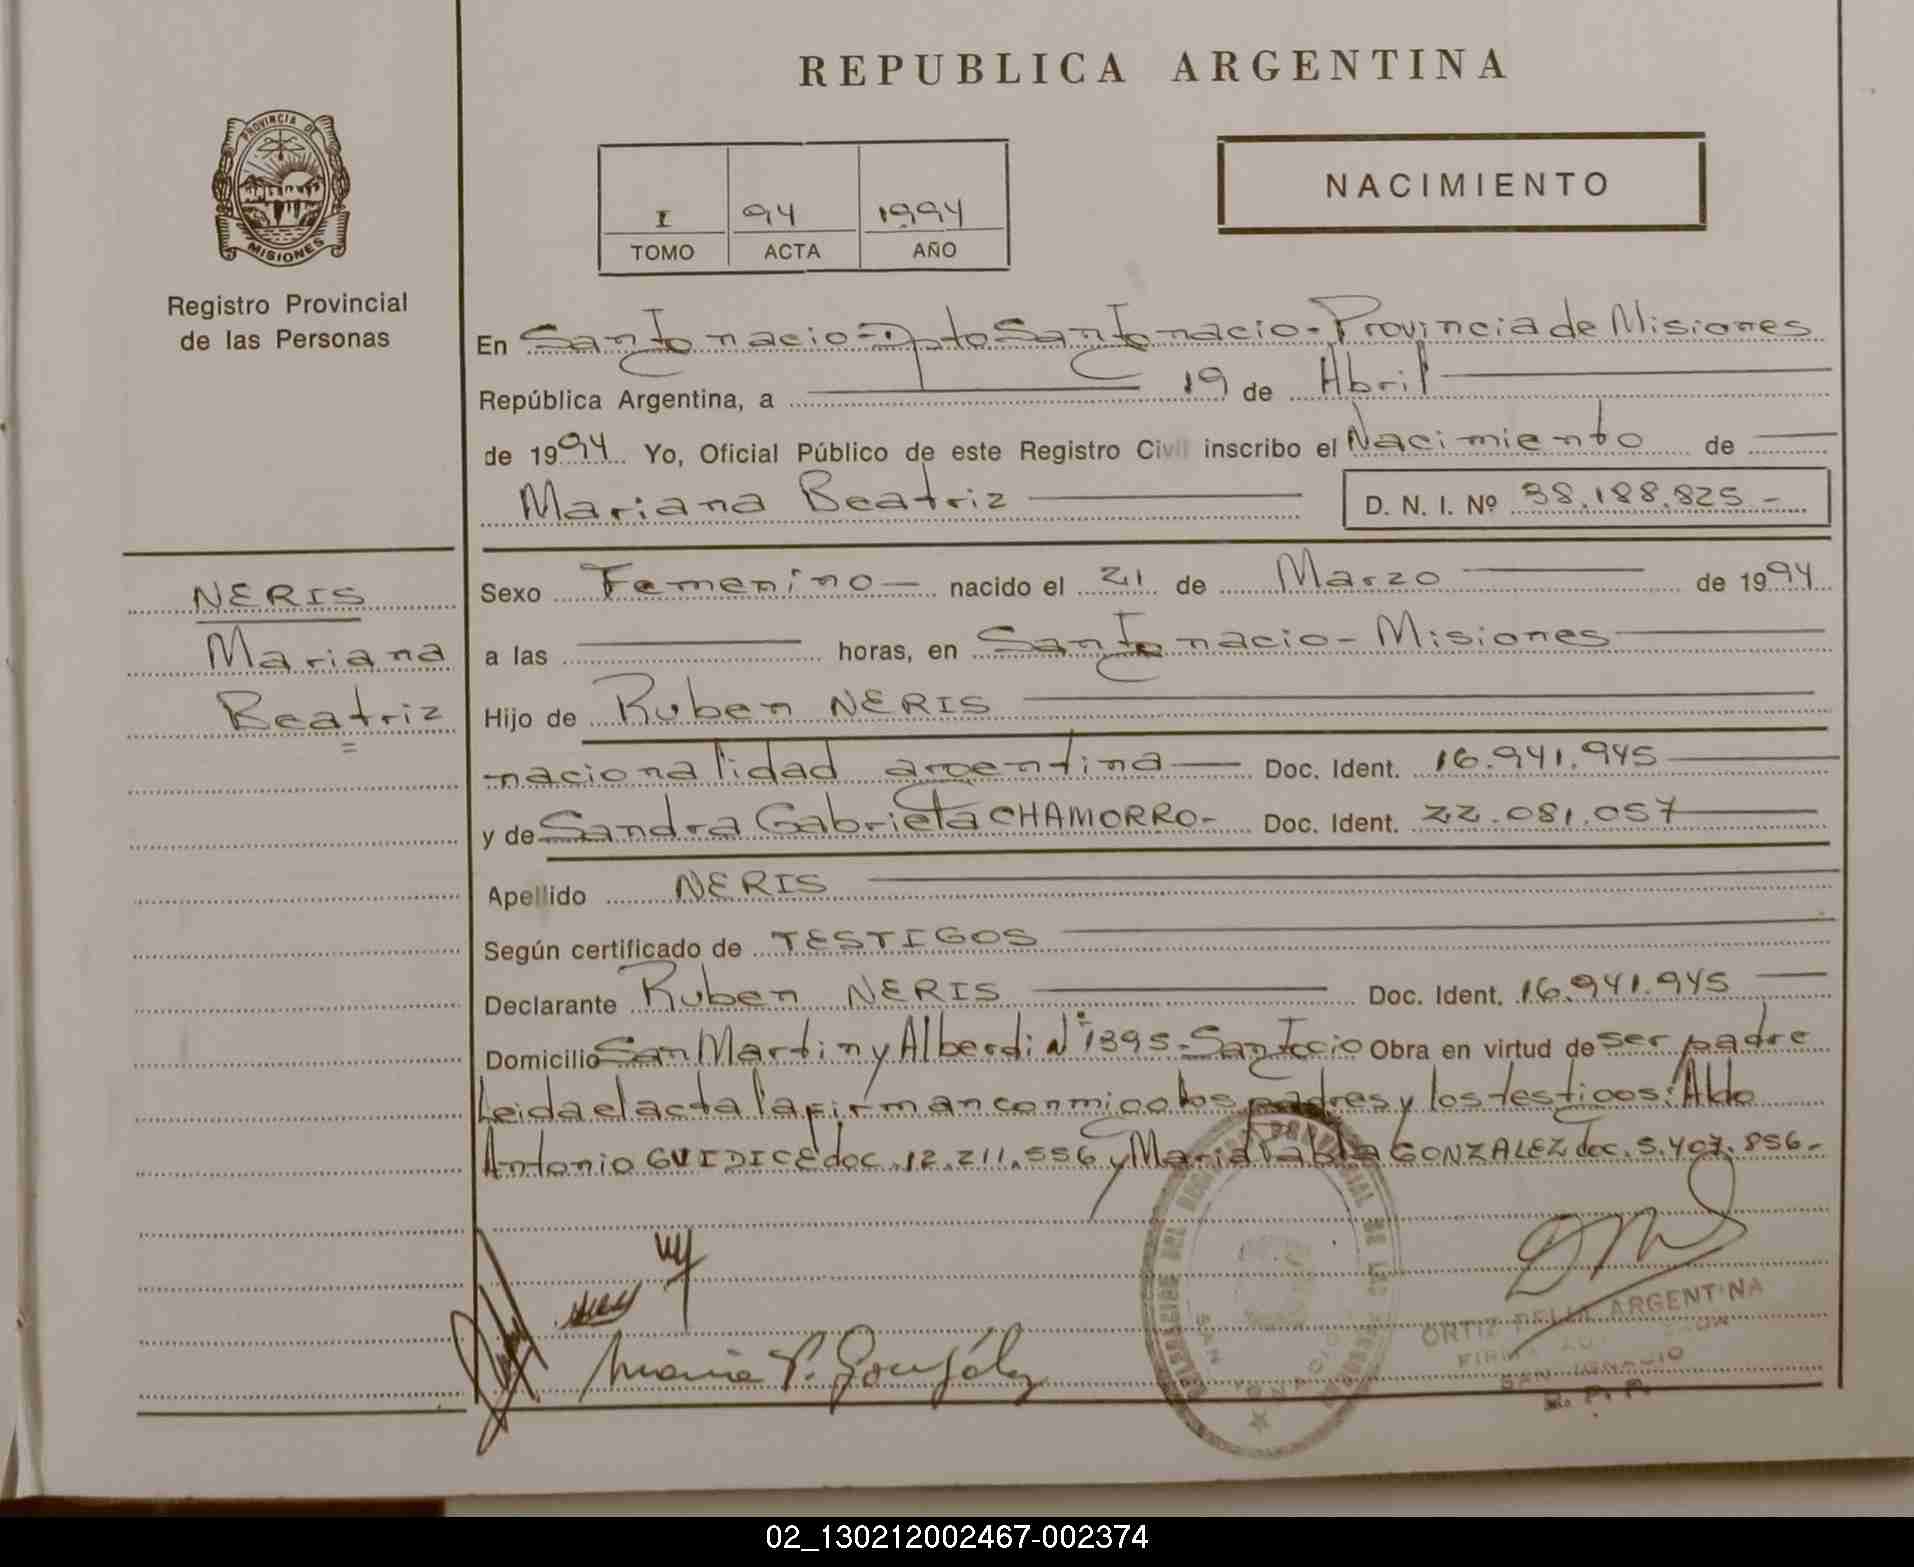 REPUBLICA ARGENTINA
PROVINCIA DE MISIONES
Registro Provincial
de las Personas
I 94 1994
TOMO ACTA AÑO
NACIMIENTO
En San Ignacio - Dpto San Ignacio - Provincia de Misiones
República Argentina, a 19 de Abril
de 1994 Yo, Oficial Público de este Registro Civil inscribo el Nacimiento de
Mariana Beatriz D. N. I. Nº 38.188.825 -
NERIS
Mariana
Beatriz
Sexo Femenino nacido el 21 de Marzo de 1994
a las horas, en San Ignacio - Misiones
Hijo de Ruben NERIS
nacionalidad argentina Doc. Ident. 16.941.945
y de Sandra Gabriela CHAMORRO - Doc. Ident. 22.081.057
Apellido NERIS
Según certificado de TESTIGOS
Declarante Ruben NERIS Doc. Ident. 16.941.945
Domicilio San Martin y Alberdi Nº 1395 - San Igcio Obra en virtud de ser padre
Leida el acta la firman conmigo los padres y los testigos: Aldo
Antonio GUIDICE doc. 12.211.556 y Maria Pabla GONZALEZ doc. 5.407.856 -
Maria P. González
DELEGACION DEL REGISTRO PROVINCIAL DE LAS PERSONAS
SAN IGNACIO
ORTIZ DELIA ARGENTINA
SAN IGNACIO
R. P. P.
02_130212002467-002374